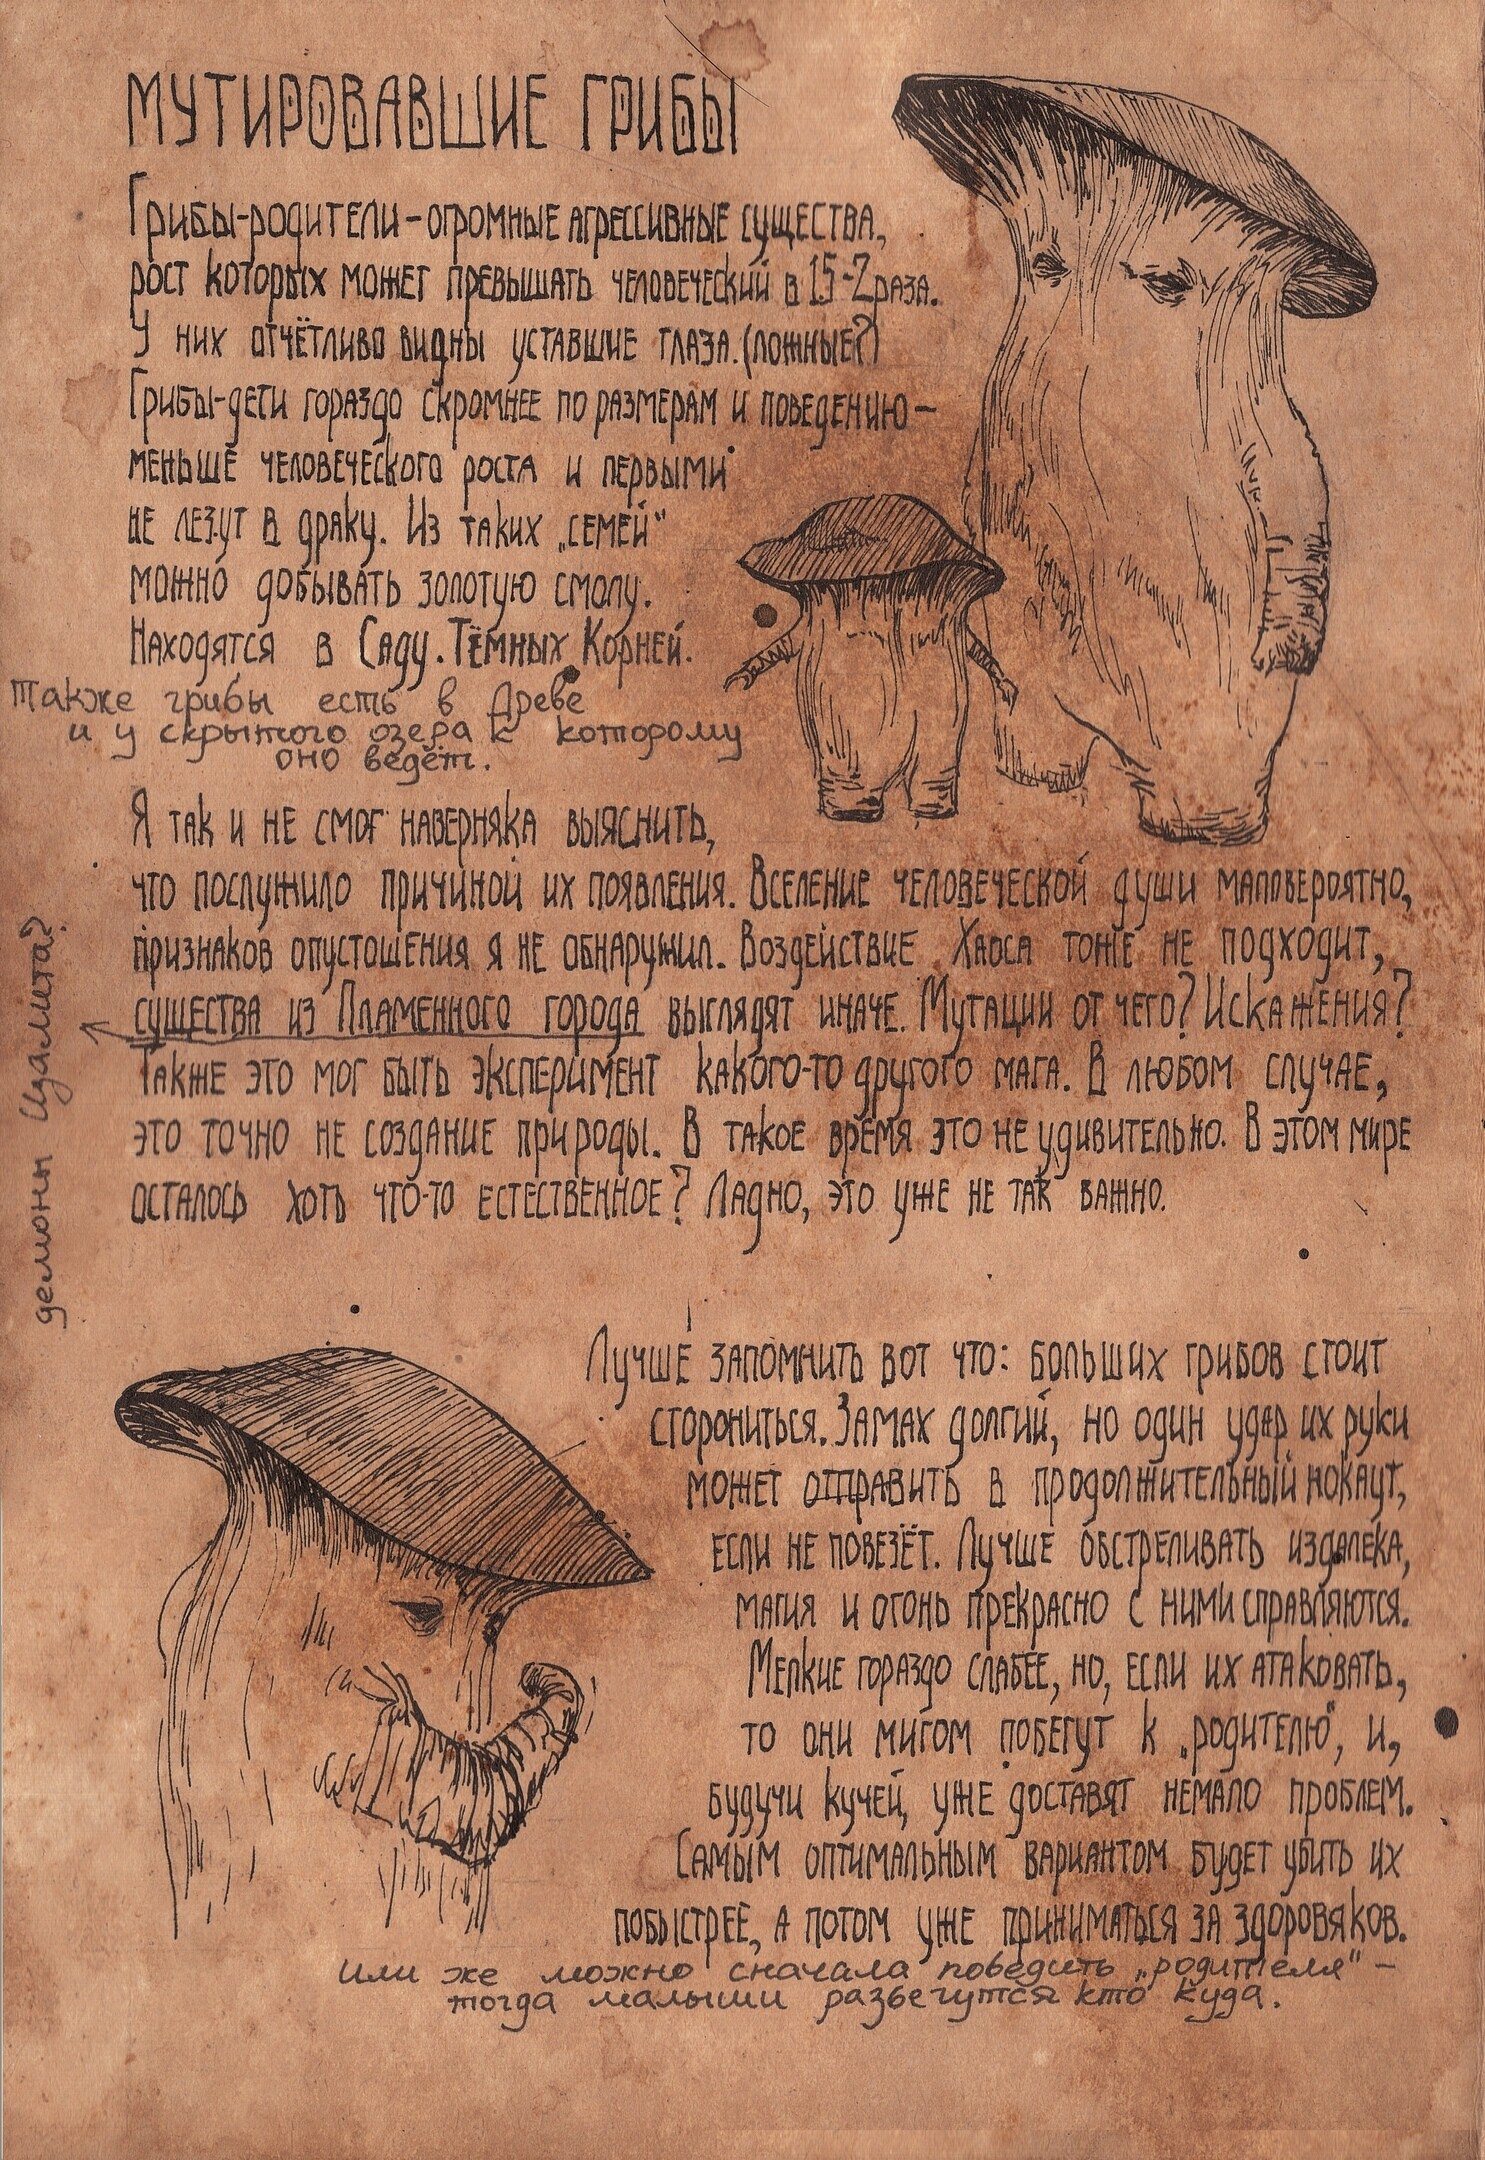 МУТИРОВАВШИЕ ГРИБЫ
Грибы-родители – огромные агрессивные существа,
рост которых может превышать человеческий в 1,5-2 раза.
У них отчётливо видны уставшие глаза. (ложные?)
Грибы-дети гораздо скромнее по размерам и поведению –
меньше человеческого роста и первыми
не лезут в драку. Из таких „семей“
можно добывать золотую смолу.
Находятся в Саду Тёмных Корней.
Также грибы есть в Древе
и у скрытого озера к которому
оно ведёт.
Я так и не смог наверняка выяснить,
что послужило причиной их появления. Вселение человеческой души маловероятно,
признаков опустошения я не обнаружил. Воздействие Хаоса тоже не подходит,
существа из Пламенного города выглядят иначе. Мутации от чего? Искажения?
Также это мог быть эксперимент какого-то другого мага. В любом случае,
это точно не создание природы. В такое время это не удивительно. В этом мире
осталось хоть что-то естественное? Ладно, это уже не так важно.
демоны Изалита?
Лучше запомнить вот что: больших грибов стоит
сторониться. Замах долгий, но один удар их руки
может отправить в продолжительный нокаут,
если не повезёт. Лучше обстреливать издалека,
магия и огонь прекрасно с ними справляются.
Мелкие гораздо слабее, но, если их атаковать,
то они мигом побегут к „родителю“, и,
будучи кучей, уже доставят немало проблем.
Самым оптимальным вариантом будет убить их
побыстрее, а потом уже приниматься за здоровяков.
Или же можно сначала победить „родителя“ –
тогда малыши разбегутся кто куда.